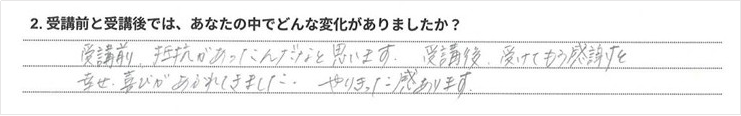 2. 受講前と受講後では、あなたの中でどんな変化がありましたか？
受講前、抵抗があったんだなと思います。 受講後、受けてもう感謝と
幸せ、喜びがあふれてきました。 やりきった感あります。